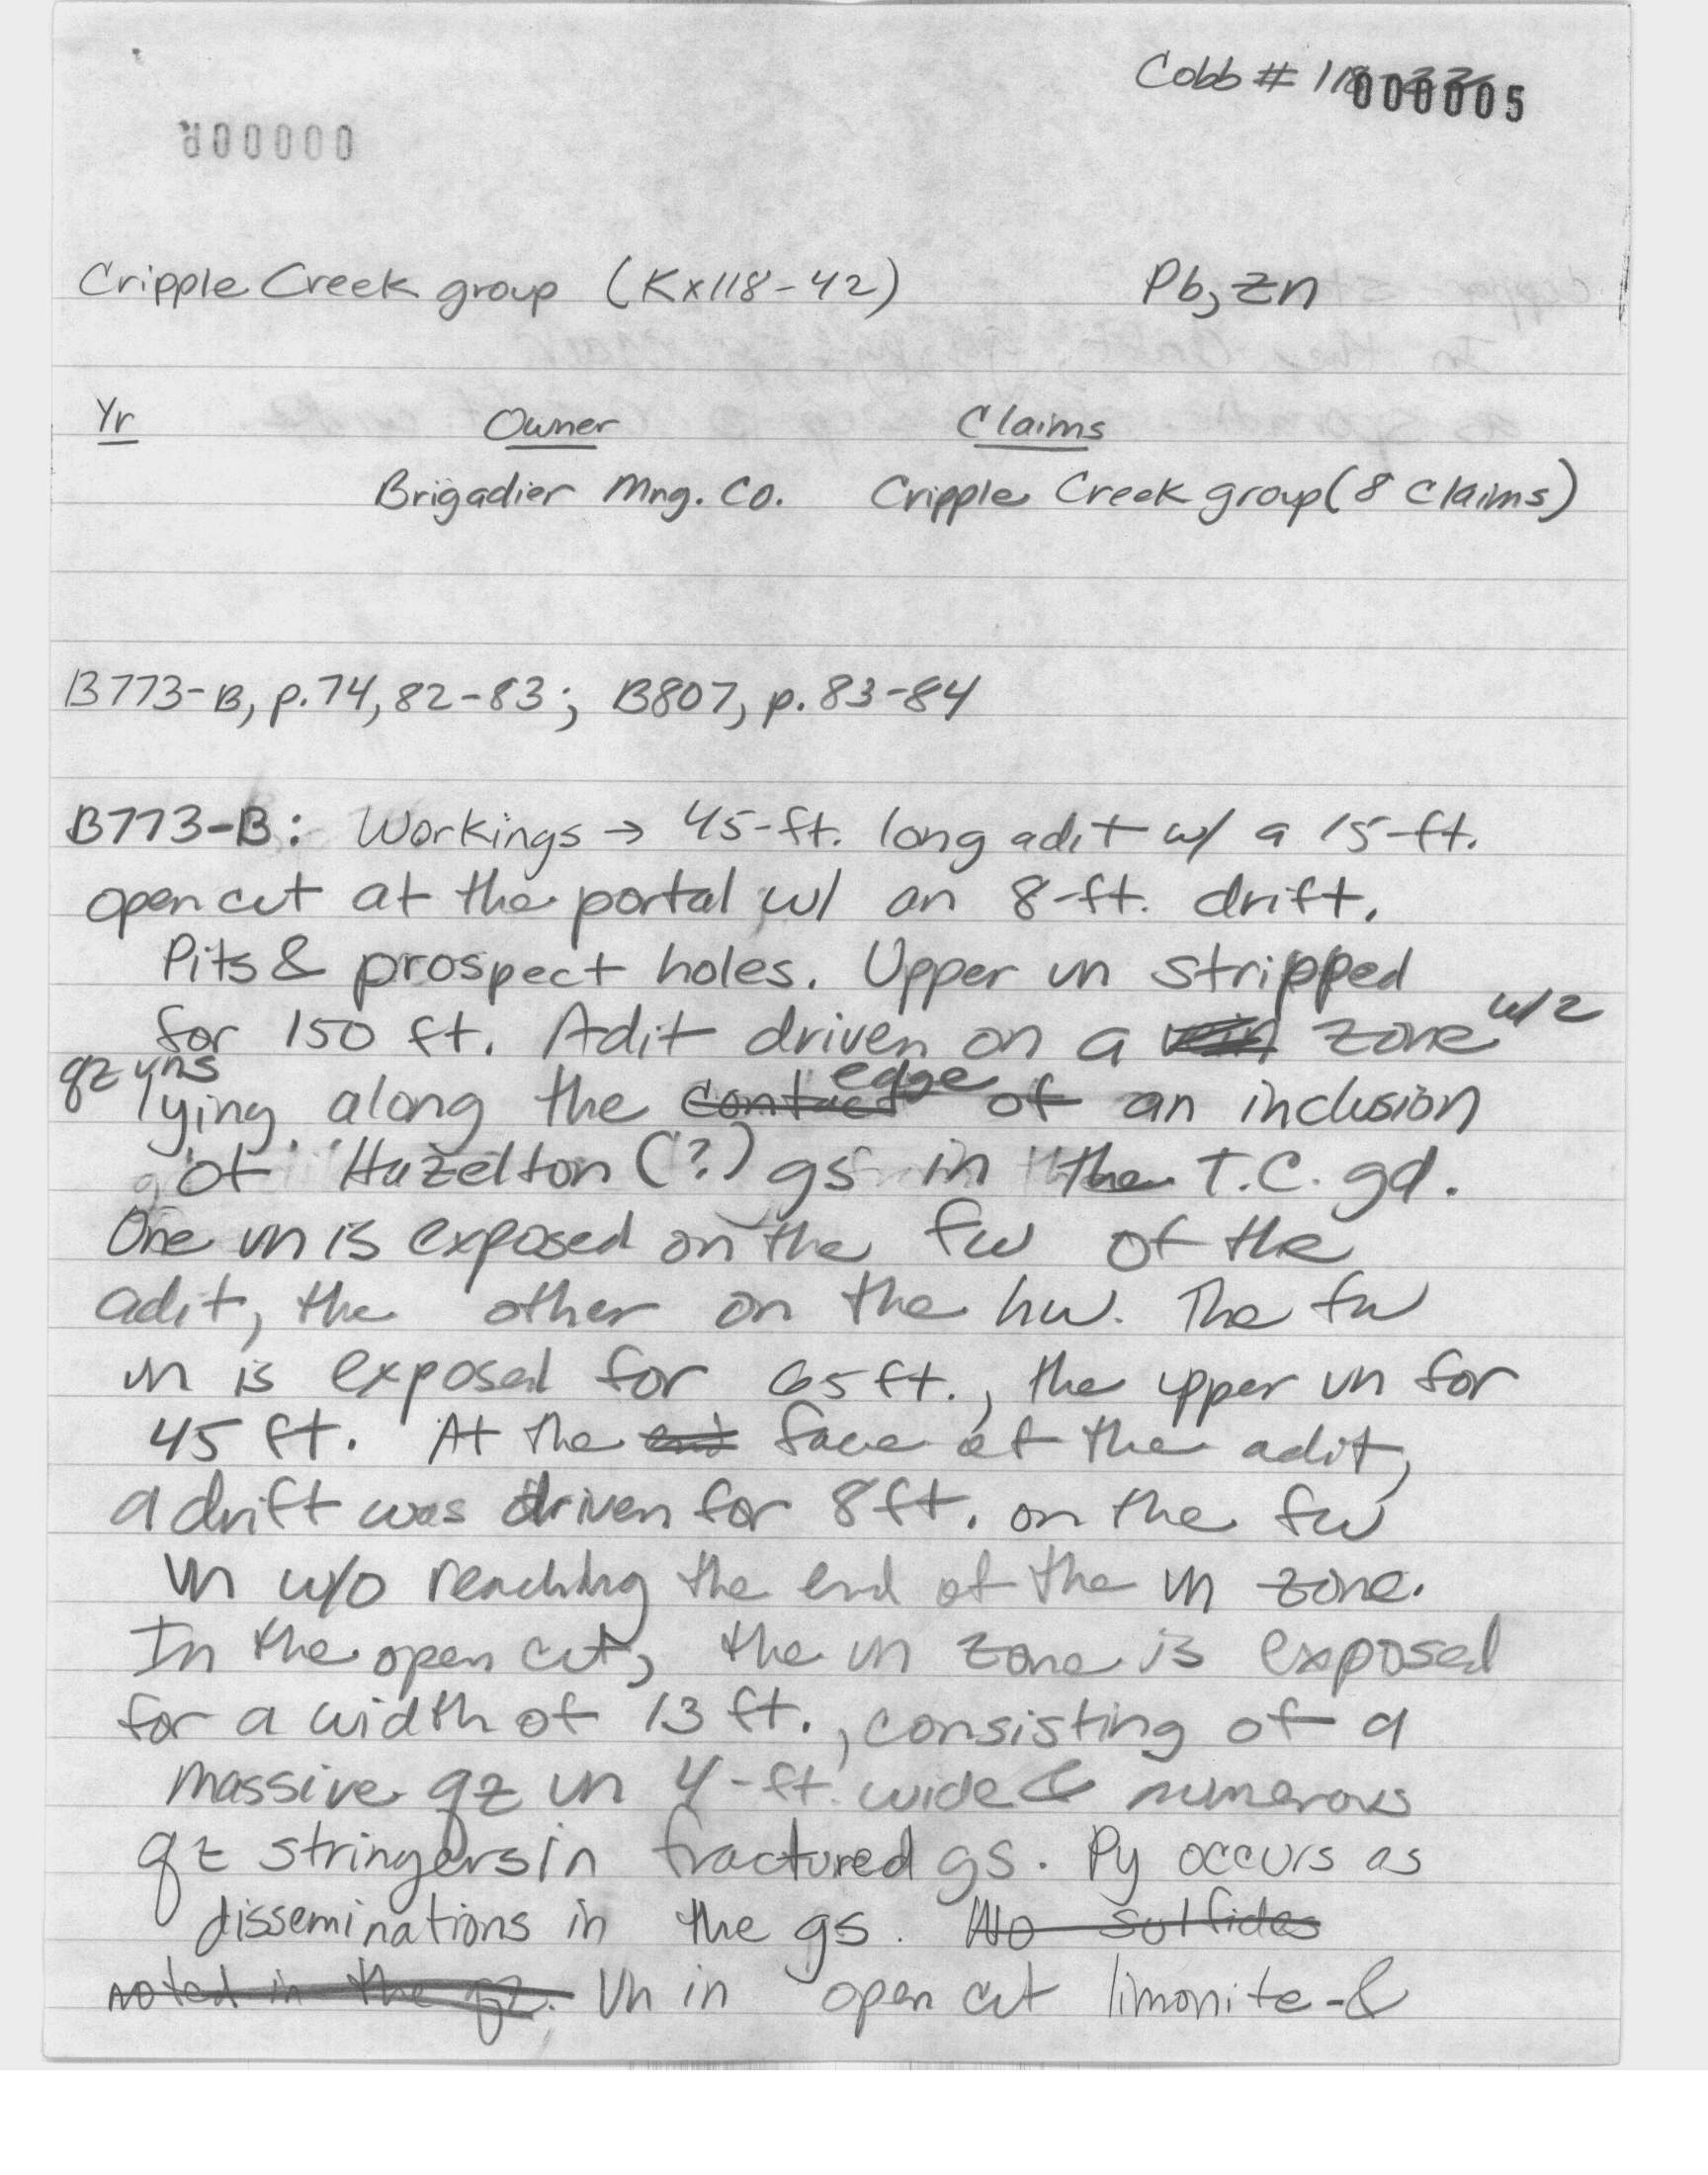 Cobb # 118
000005
Cripple Creek group (Kx118-42) Pb, Zn
Yr Owner Claims
Brigadier Mng. Co. Cripple Creek group (8 claims)
B773-B, p.74, 82-83; B807, p. 83-84
B773-B: Workings → 45-ft. long adit w/ a 15-ft.
open cut at the portal w/ an 8-ft. drift.
Pits & prospect holes. Upper vn stripped
for 150 ft. Adit driven on a vein zone w/2
qz vns
lying along the contact edge of an inclusion
of Hazelton (?) gs in the T.C. gd.
One vn is exposed on the fw of the
adit, the other on the hw. The fw
vn is exposed for 65 ft., the upper vn for
45 ft. At the end face of the adit,
a drift was driven for 8 ft. on the fw
vn w/o reaching the end of the vn zone.
In the open cut, the vn zone is exposed
for a width of 13 ft., consisting of a
massive qz vn 4-ft. wide & numerous
qz stringers in fractured gs. Py occurs as
disseminations in the gs. No sulfides
noted in the qz. Vn in open cut limonite-&